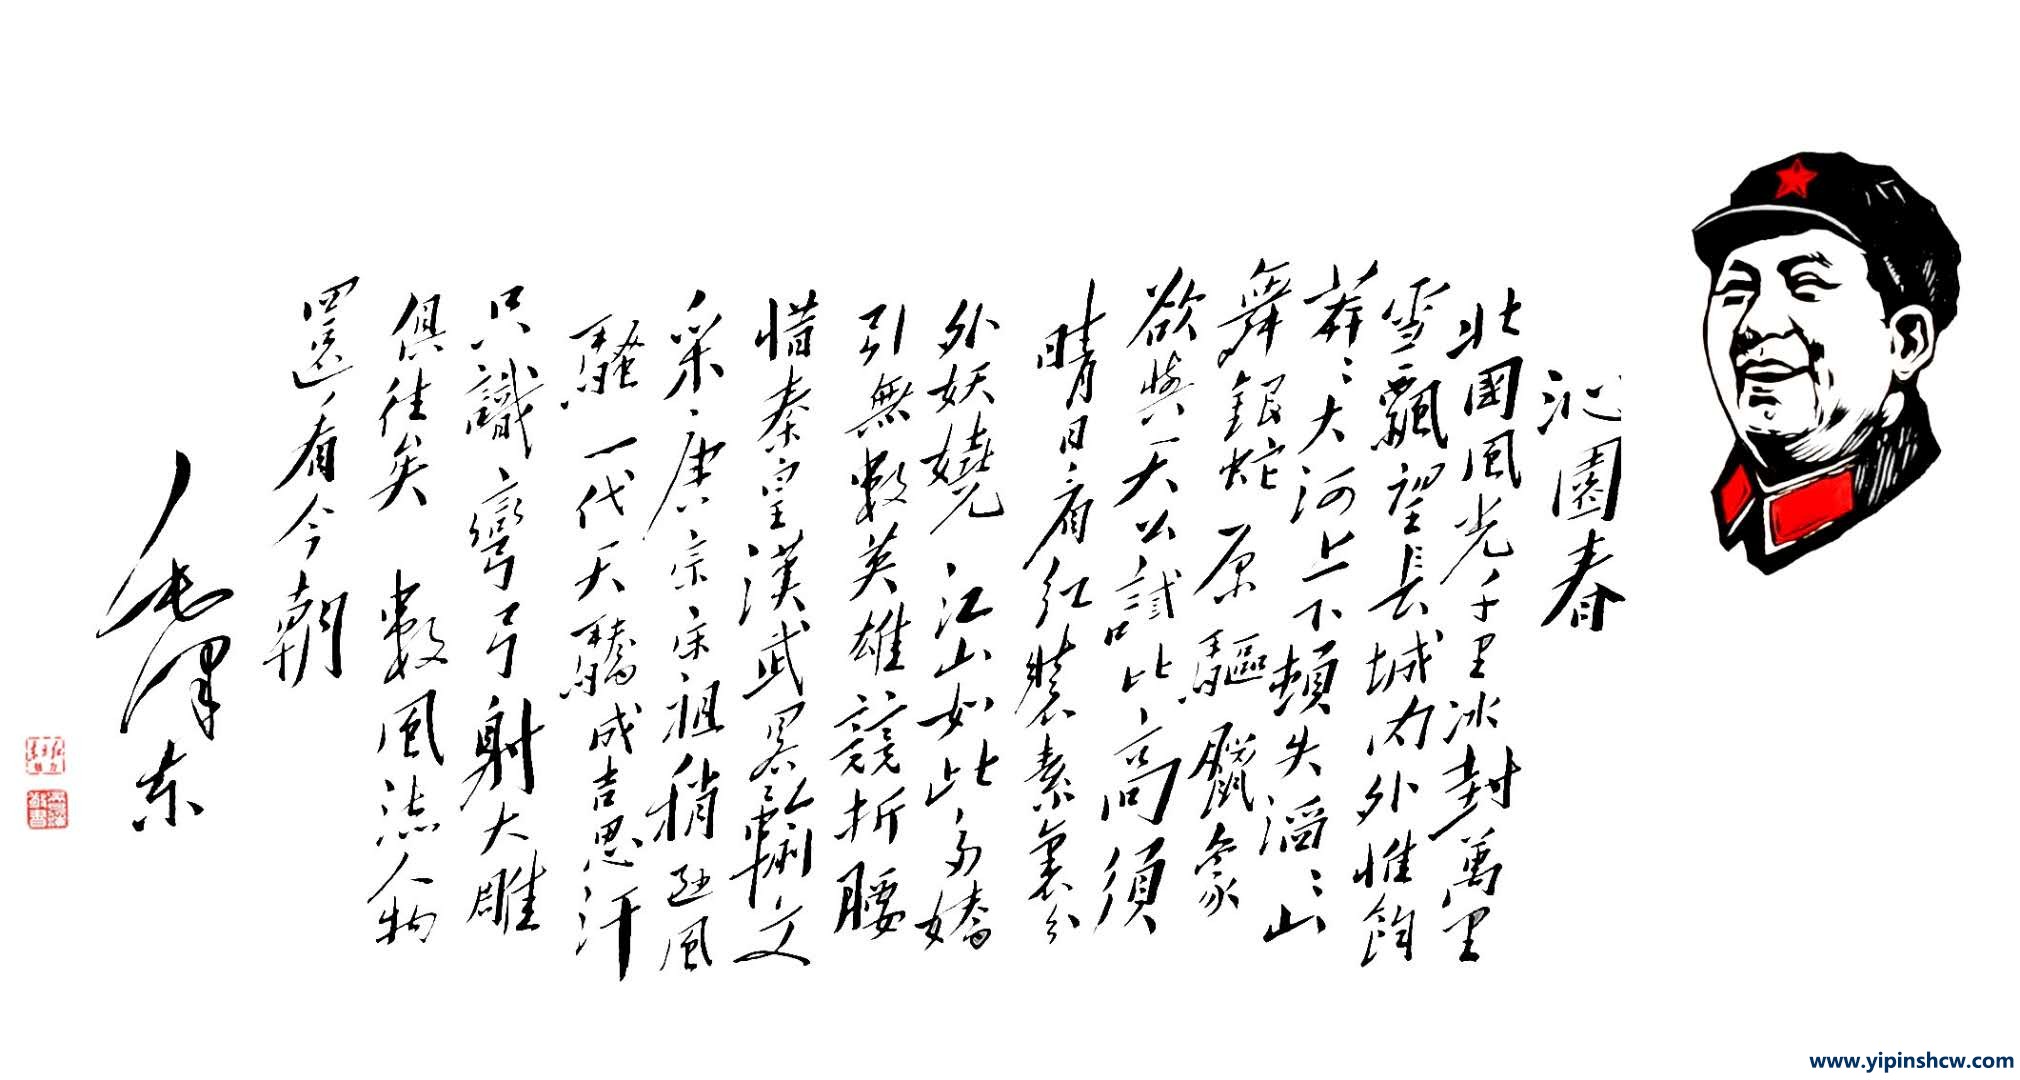 沁園春
北國風光千里冰封萬里
雪飄望長城内外惟餘
莽〻大河上下頓失滔〻山
舞銀蛇原驅臘象
欲與天公試比高須
晴日看紅裝素裹分
外妖嬈江山如此多嬌
引無數英雄競折腰
惜秦皇漢武畧輸文
采唐宗宋祖稍遜風
騷一代天驕成吉思汗
只識彎弓射大雕
俱往矣數風流人物
還看今朝
毛澤东
www.yipinshcw.com